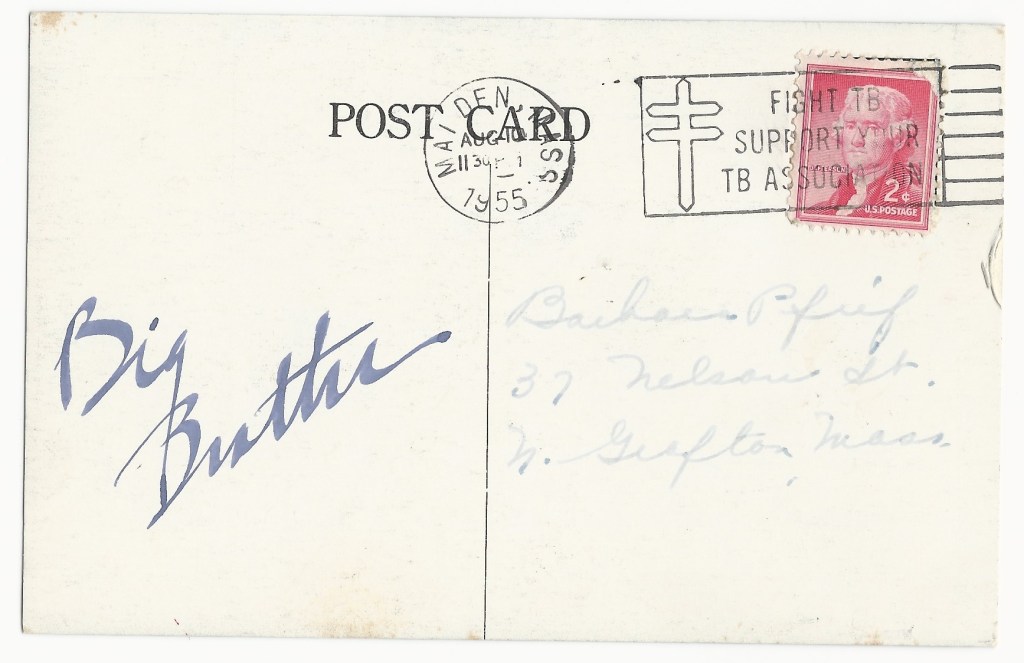 POST CARD
MALDEN MASS.
AUG 18
11 30 PM
1955
FIGHT TB
SUPPORT YOUR
TB ASSOCIATION
2¢
U.S. POSTAGE
Big
Brother
Barbara
37 Nelson St.
N. Grafton, Mass